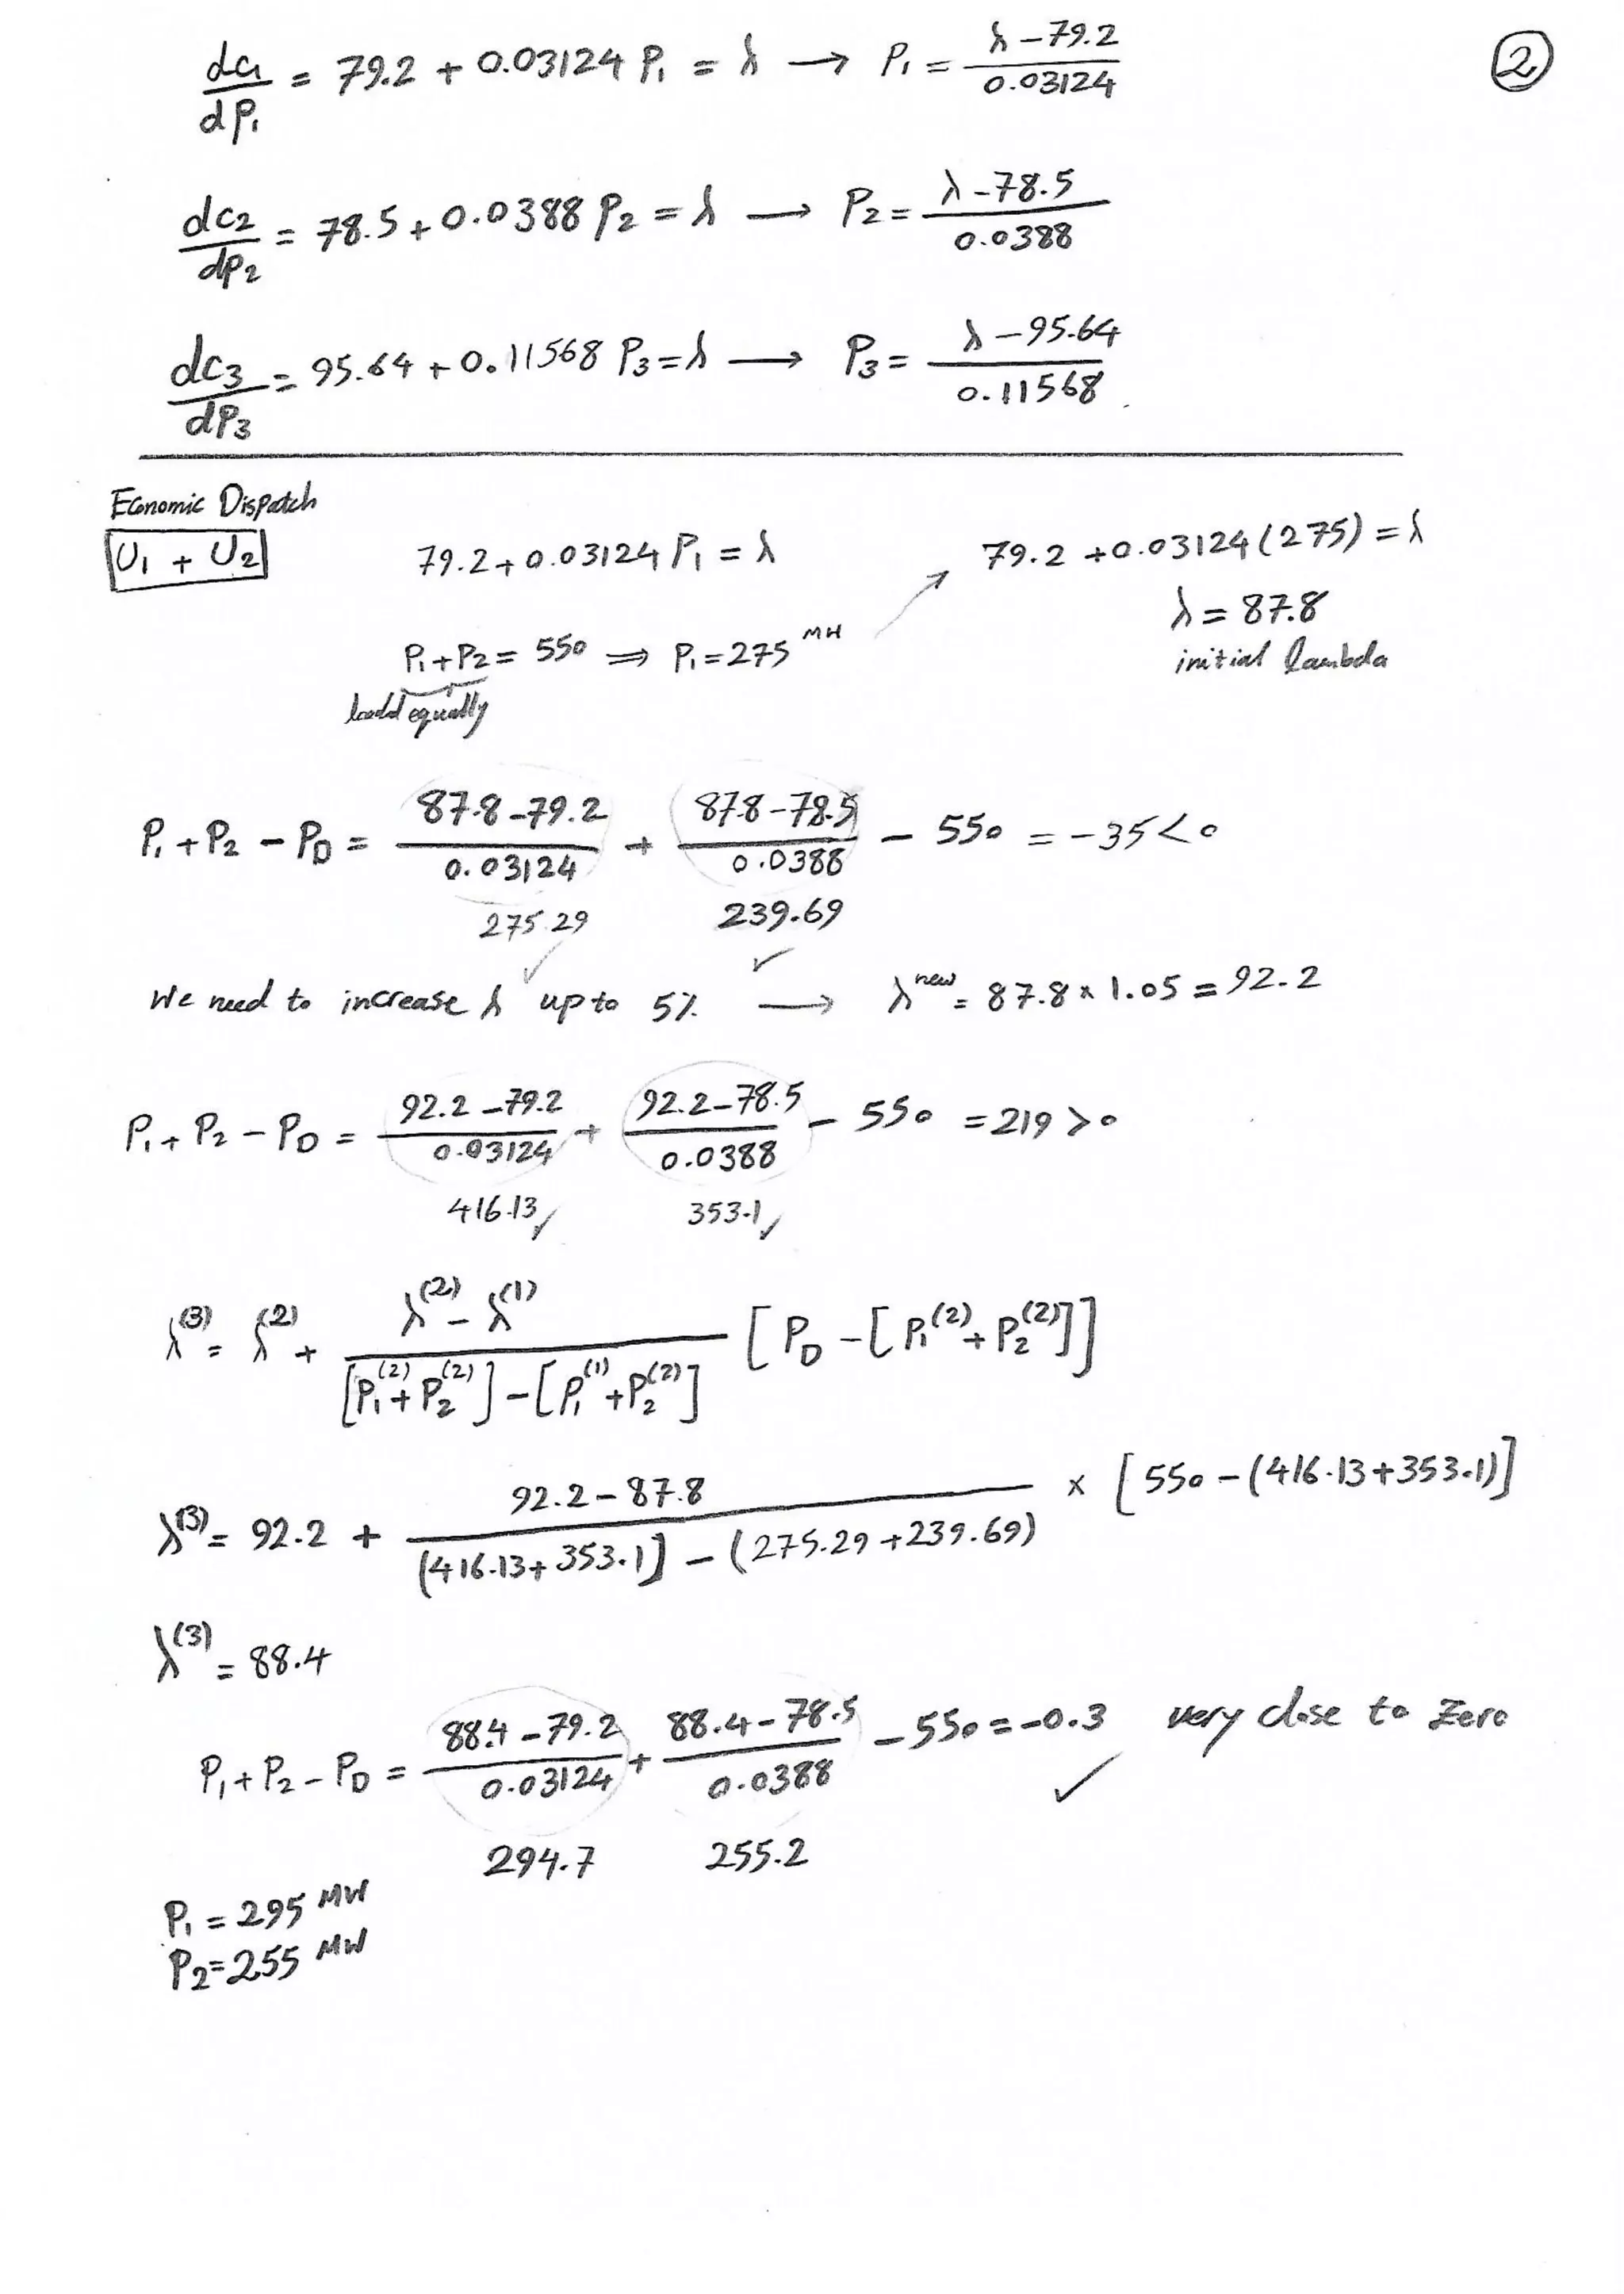 ②
dc₁/dP₁ = 79.2 + 0.03124 P₁ = λ → P₁ = (λ - 79.2)/0.03124
dc₂/dP₂ = 78.5 + 0.0388 P₂ = λ → P₂ = (λ - 78.5)/0.0388
dc₃/dP₃ = 95.64 + 0.11568 P₃ = λ → P₃ = (λ - 95.64)/0.11568
Economic Dispatch
U₁ + U₂
79.2 + 0.03124 P₁ = λ
79.2 + 0.03124 (275) = λ
λ = 87.8
P₁ + P₂ = 550 ⇒ P₁ = 275 MW
initial lambda
loaded equally
P₁ + P₂ - P_D = (87.8 - 79.2)/0.03124 + (87.8 - 78.5)/0.0388 - 550 = -35 < 0
275.29 239.69
✓ ✓
We need to increase λ up to 5% → λ^new = 87.8 × 1.05 = 92.2
P₁ + P₂ - P_D = (92.2 - 79.2)/0.03124 + (92.2 - 78.5)/0.0388 - 550 = 219 > 0
416.13 ✓ 353.1 ✓
λ^(3) = λ^(2) + (λ^(2) - λ^(1))/([P₁^(2) + P₂^(2)] - [P₁^(1) + P₂^(2)]) [P_D - [P₁^(2) + P₂^(2)]]
λ^(3) = 92.2 + (92.2 - 87.8)/((416.13 + 353.1] - (275.29 + 239.69)) × [550 - (416.13 + 353.1)]
λ^(3) = 88.4
P₁ + P₂ - P_D = (88.4 - 79.2)/0.03124 + (88.4 - 78.5)/0.0388 - 550 = -0.3 very close to Zero
✓
294.7 255.2
P₁ = 295 MW
P₂ = 255 MW